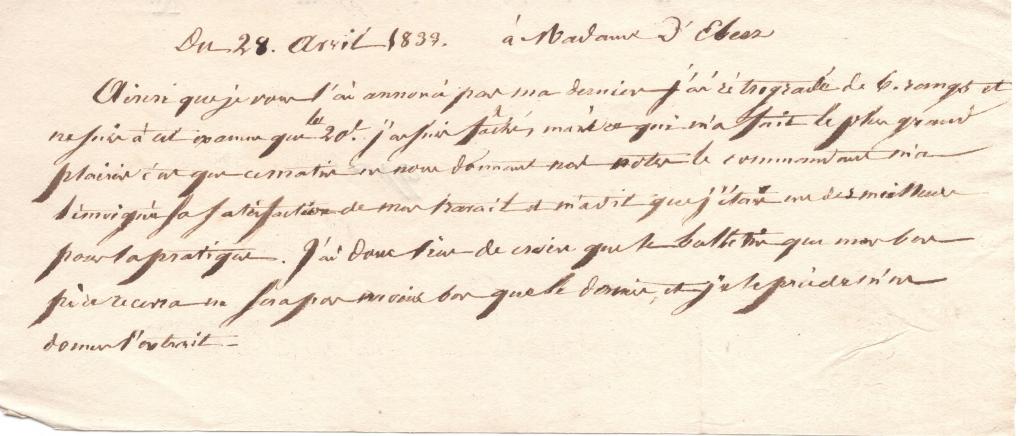 Du 28. Avril 1838. à Madame D'Ebers
Ainsi que je vous l'ai annoncé par ma dernière j'ai rétrogradé de 6. rangs et
ne suis à cet examen que le 20e. j'en suis fâché, mais ce qui m'a fait le plus grand
plaisir c'est que ce matin en nous donnant nos notes le commandant m'a
témoigné sa satisfaction de mon travail et m'a dit que j'étais un des meilleurs
pour la pratique. J'ai donc lieu de croire que le bulletin que mon bon
père recevra ne sera pas moins bon que le dernier, et je le prie de m'en
donner l'extrait.